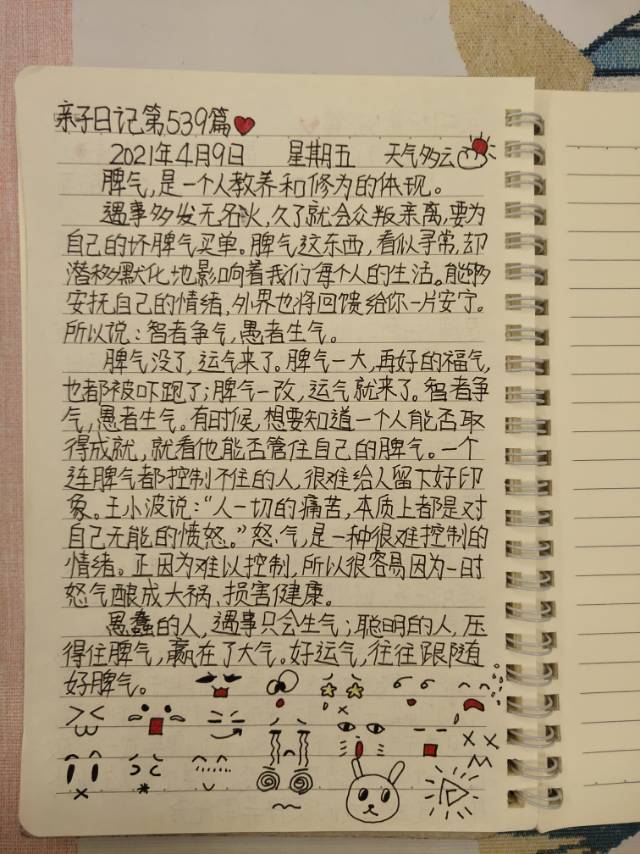 亲子日记第539篇
2021年4月9日 星期五 天气多云
脾气,是一个人教养和修为的体现。
遇事多发无名火,久了就会众叛亲离,要为
自己的坏脾气买单。脾气这东西,看似寻常,却
潜移默化地影响着我们每个人的生活。能够
安抚自己的情绪,外界也将回馈给你一片安宁。
所以说:智者争气,愚者生气。
脾气没了,运气来了。脾气一大,再好的福气,
也都被吓跑了;脾气一改,运气就来了。智者争
气,愚者生气。有时候,想要知道一个人能否取
得成就,就看他能否管住自己的脾气。一个
连脾气都控制不住的人,很难给人留下好印
象。王小波说:“人一切的痛苦,本质上都是对
自己无能的愤怒。”怒气,是一种很难控制的
情绪。正因为难以控制,所以很容易因为一时
怒气酿成大祸、损害健康。
愚蠢的人,遇事只会生气;聪明的人,压
得住脾气,赢在了大气。好运气,往往跟随
好脾气。